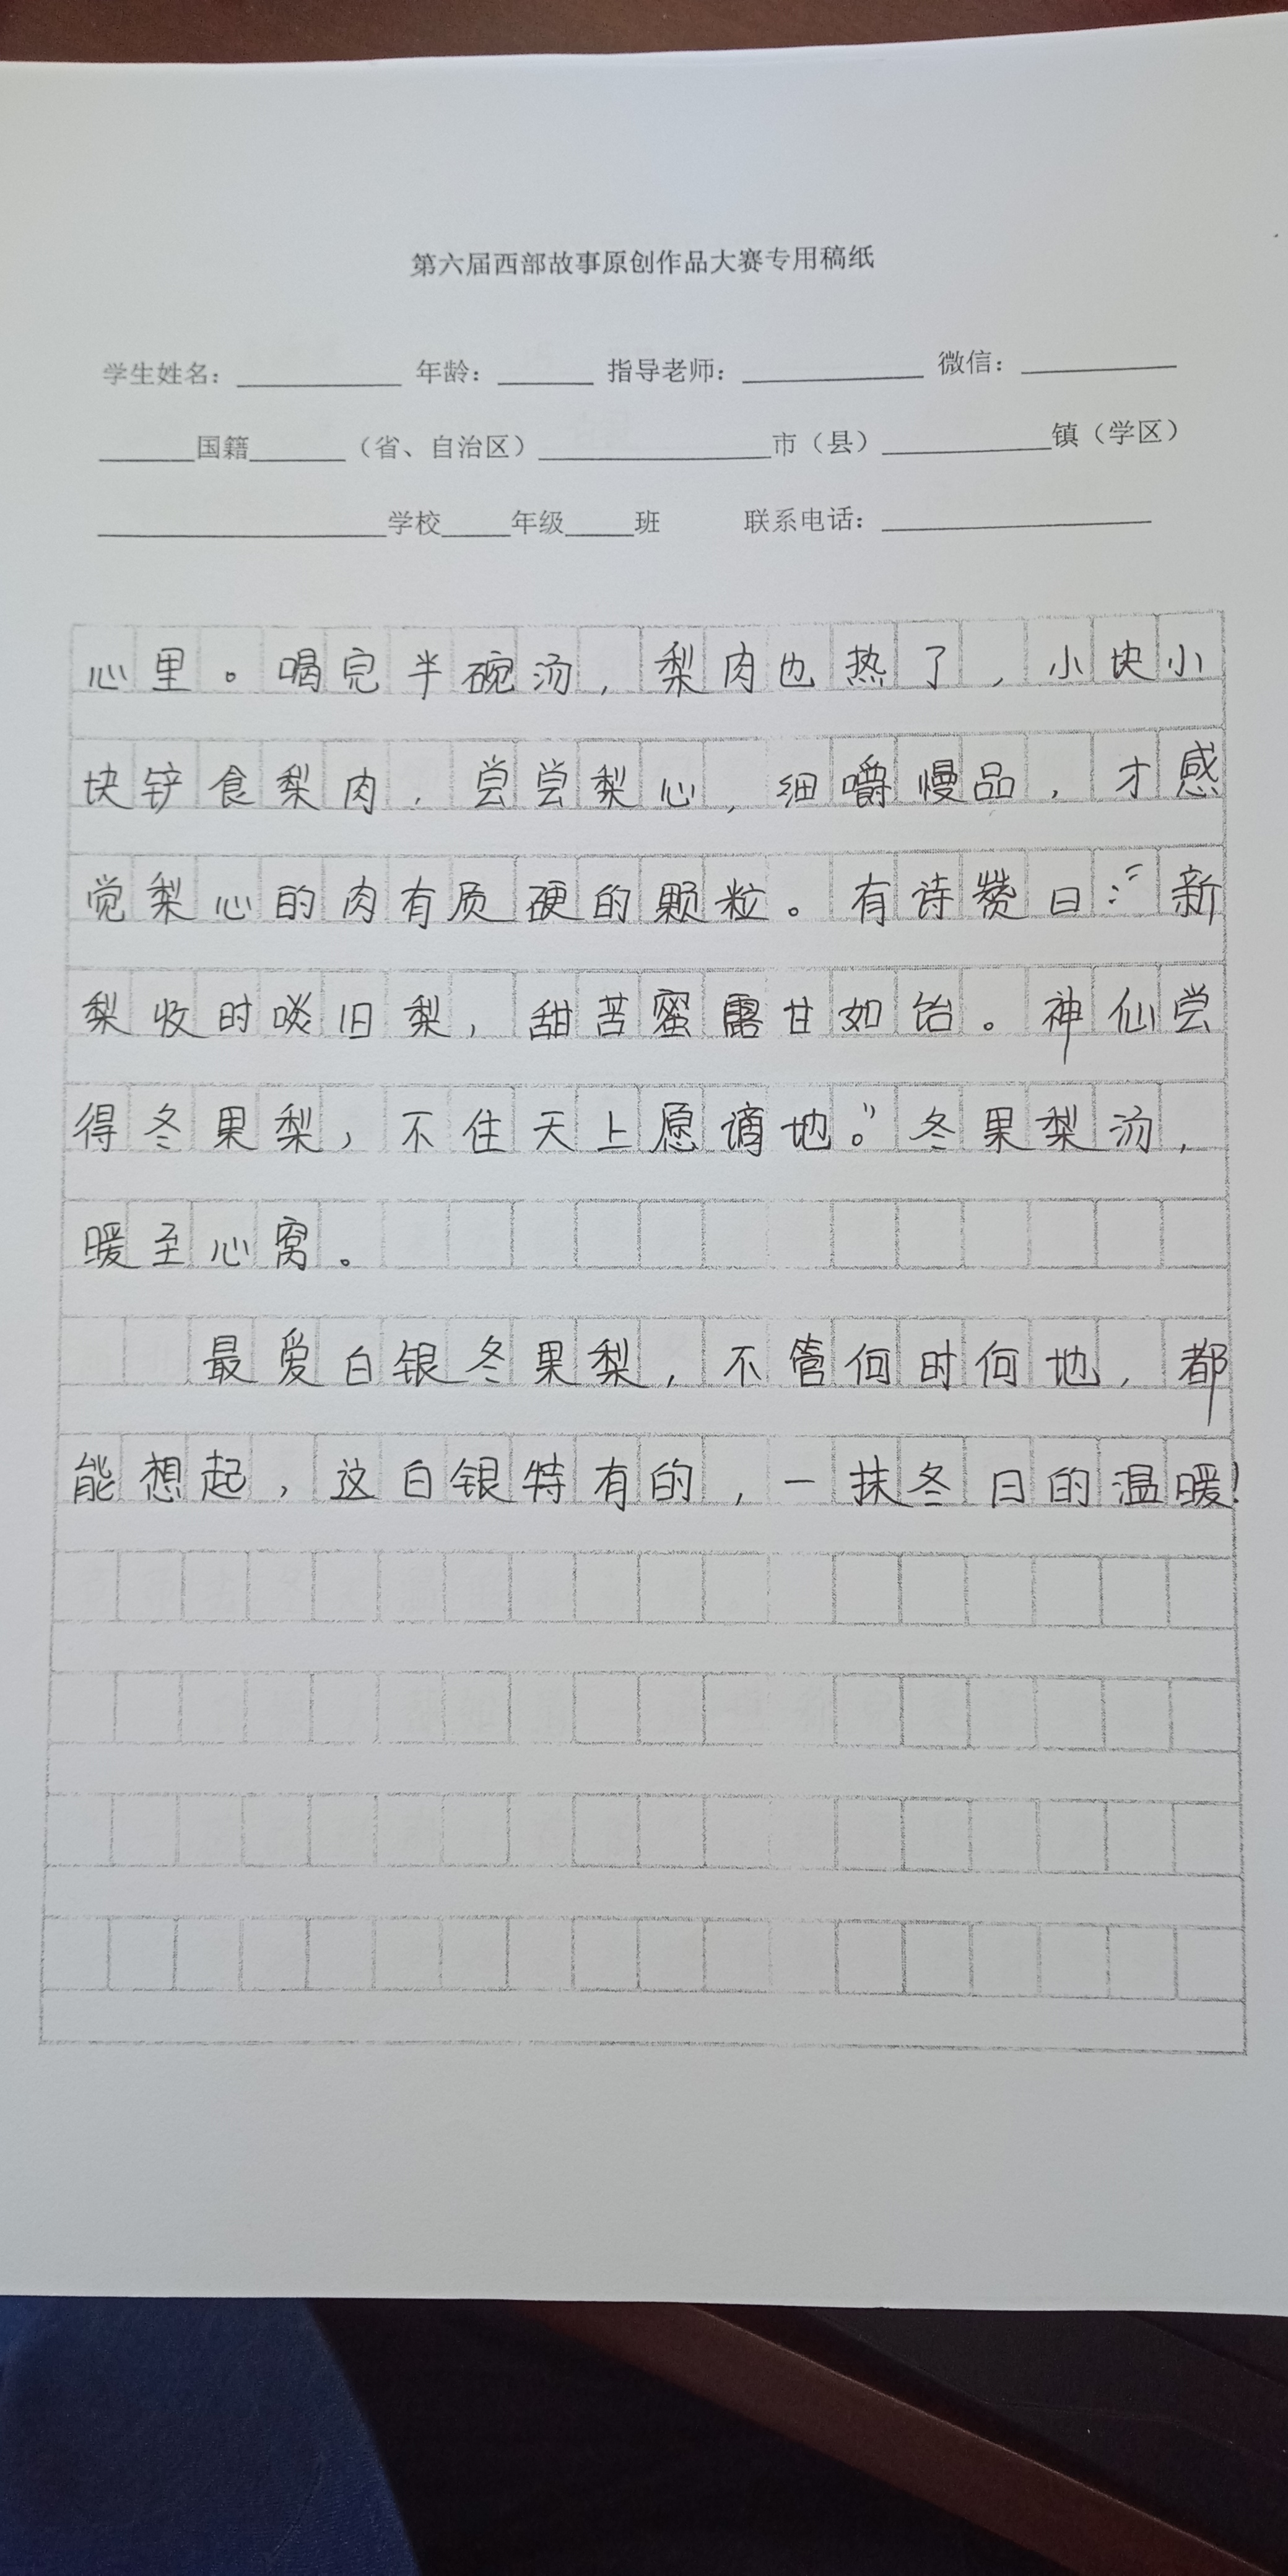 第六届西部故事原创作品大赛专用稿纸
学生姓名：____ 年龄：____ 指导老师：____ 微信：____
____国籍____（省、自治区）____市（县）____镇（学区）
____学校____年级____班 联系电话：____
心里。喝完半碗汤，梨肉也热了，小块小
块铲食梨肉，尝尝梨心，细嚼慢品，才感
觉梨心的肉有质硬的颗粒。有诗赞曰：“新
梨收时啖旧梨，甜苦蜜露甘如饴。神仙尝
得冬果梨，不住天上愿谪地。”冬果梨汤，
暖至心窝。
最爱白银冬果梨，不管何时何地，都
能想起，这白银特有的，一抹冬日的温暖！